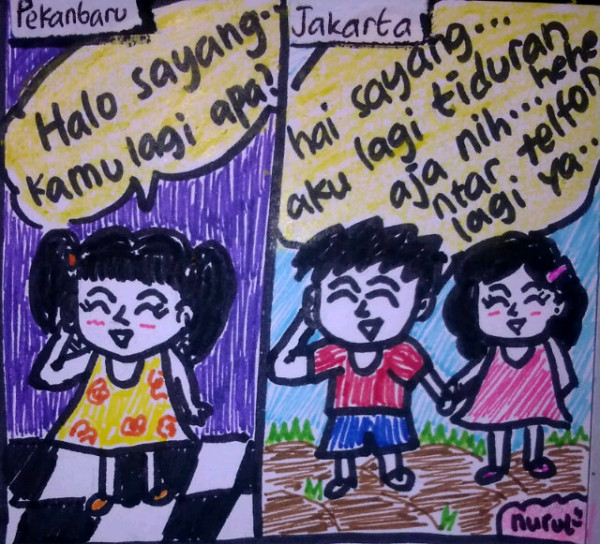 Pekanbaru
Halo sayang..
kamu lagi apa?
Jakarta
hai sayang...
aku lagi tiduran
aja nih... hehe
ntar telfon
lagi ya..
nurul